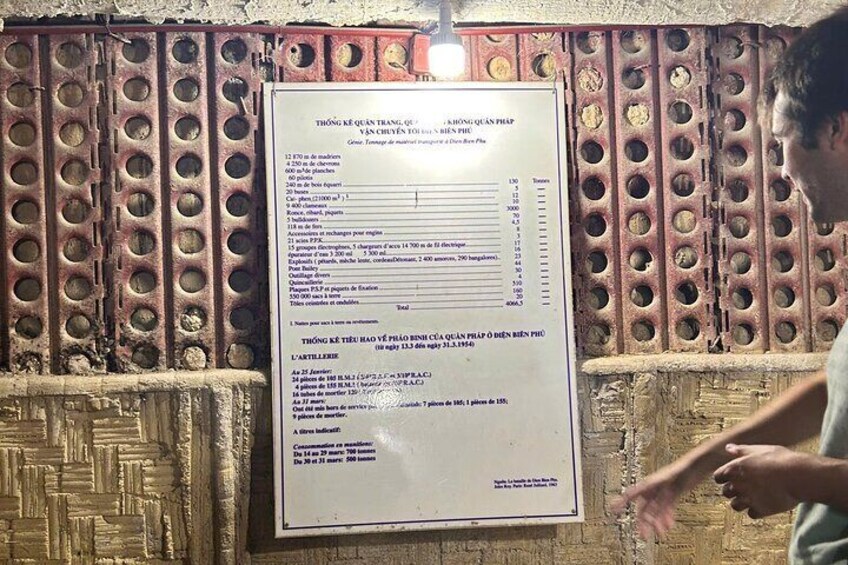 THỐNG KÊ QUÂN TRANG, KHÔNG QUÂN PHÁP
VẬN CHUYỂN TỚI ĐIỆN BIÊN PHỦ
Génie. Tonnage de matériel transporté à Dien Bien Phu
12 870 m de madriers
4 250 m de chevrons
600 m³ de planches
60 pilotis
240 m de bois équarri 130 Tonnes
20 buses 5 —
(21000 m²) 12 —
9 400 10 —
Ronce, ribard, piquets 3000 —
5 bulldozers 70 —
118 m de fers 4,5 —
Accessoires et rechanges pour engins 8 —
21 scies P.P.K. 3 —
15 groupes électrogènes, 5 chargeurs d'accu 14 700 m de fil électrique 17 —
épurateur d'eau 3 200 ml 5 300 ml 16 —
Explosifs ( pétards, mèche lente, 2 400 amorces, 290 bangalores) 23 —
Pont Bailey 44 —
Outillage divers 30 —
Quincaillerie 4 —
Plaques P.S.P et piquets de fixation 510 —
550 000 sacs à terre 160 —
Tôles ceintrées et ondulées 20 —
Total 4066,5 —
THỐNG KÊ TIÊU HAO VỀ PHÁO BINH CỦA QUÂN PHÁP Ở ĐIỆN BIÊN PHỦ
(từ ngày 13.3 đến ngày 31.3.1954)
L'ARTILLERIE
Au 25 Janvier:
24 pièces de 105 H.M.
4 pièces de 155 H.M. R.A.C.)
16 tubes de mortier 120 R.A.C.)
Au 31 mars:
Ont été mis hors de service 7 pièces de 105; 1 pièces de 155;
9 pièces de mortier.
A titres indicatif:
Consommation en munitions:
Du 14 au 29 mars: 700 tonnes
Du 30 et 31 mars: 500 tonnes
Nguồn: La bataille de Dien Bien Phu
Jules Roy. Paris: René Julliard, 1963